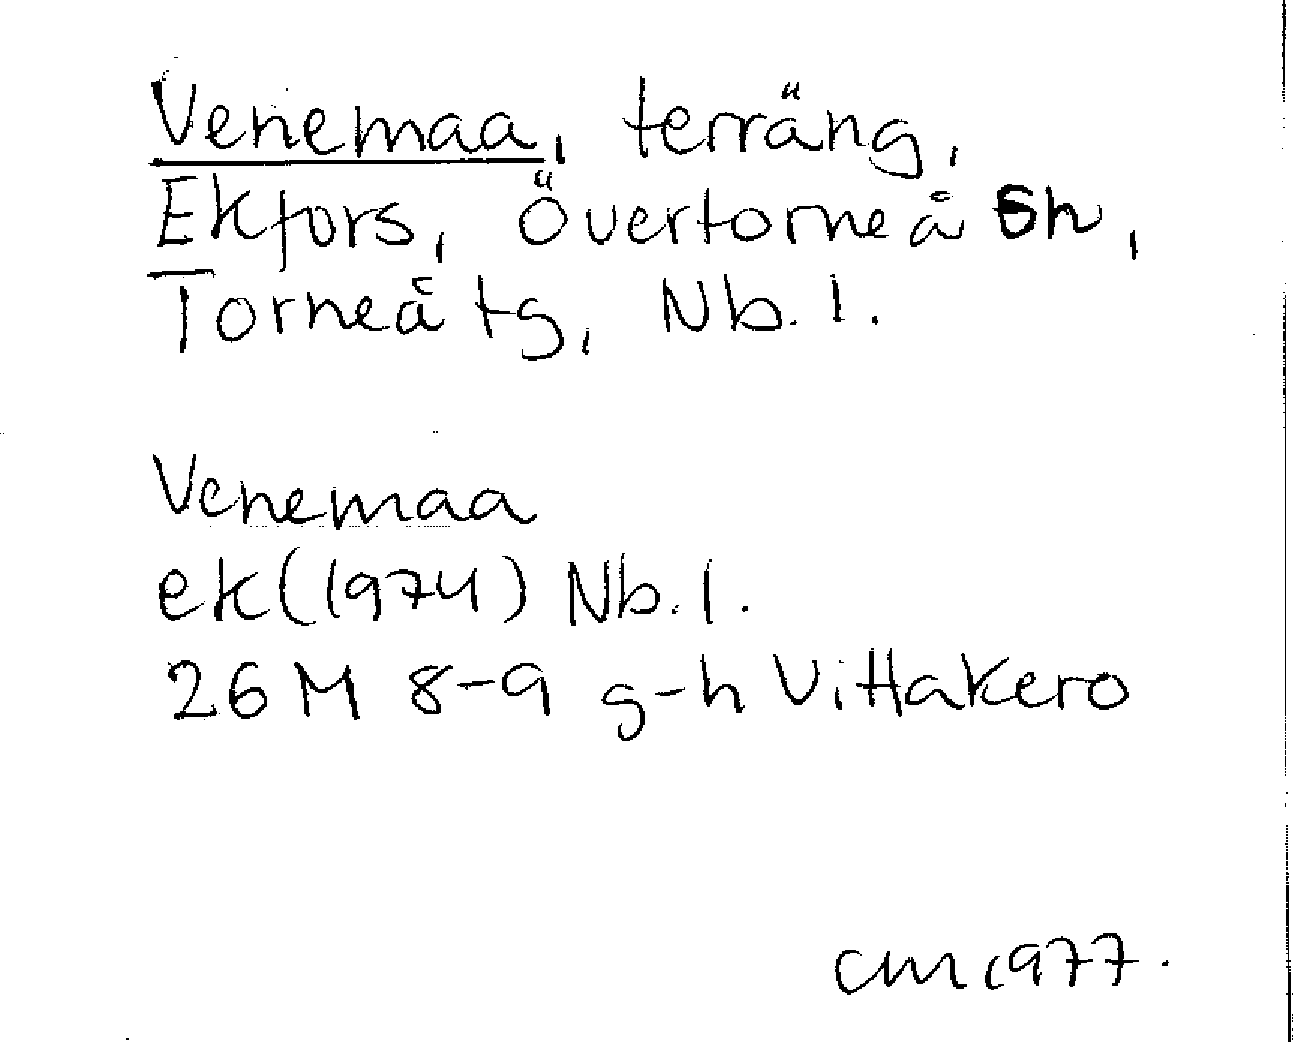 Venemaa, terräng,
Ekfors, Övertorneå sn,
Torneå tg, Nb. l.
Venemaa
ek(1974) Nb. l.
26 M 8-9 g-h Vittakero
cm 1977.